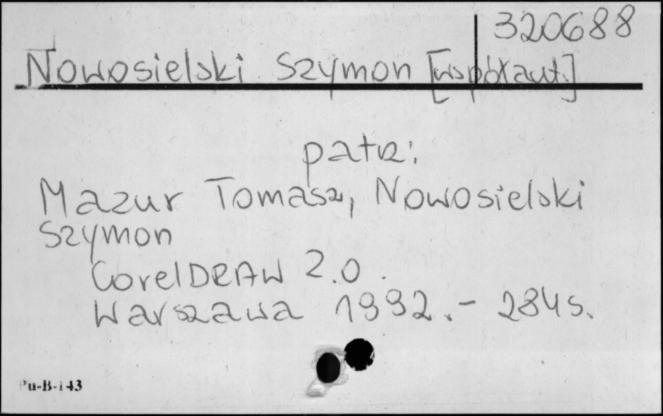 320688
Nowosielski Szymon [współaut.]
patrz:
Mazur Tomasz, Nowosielski
Szymon
CorelDRAW 2.0.
Warszawa 1992.- 284 s.
Pu-B-143